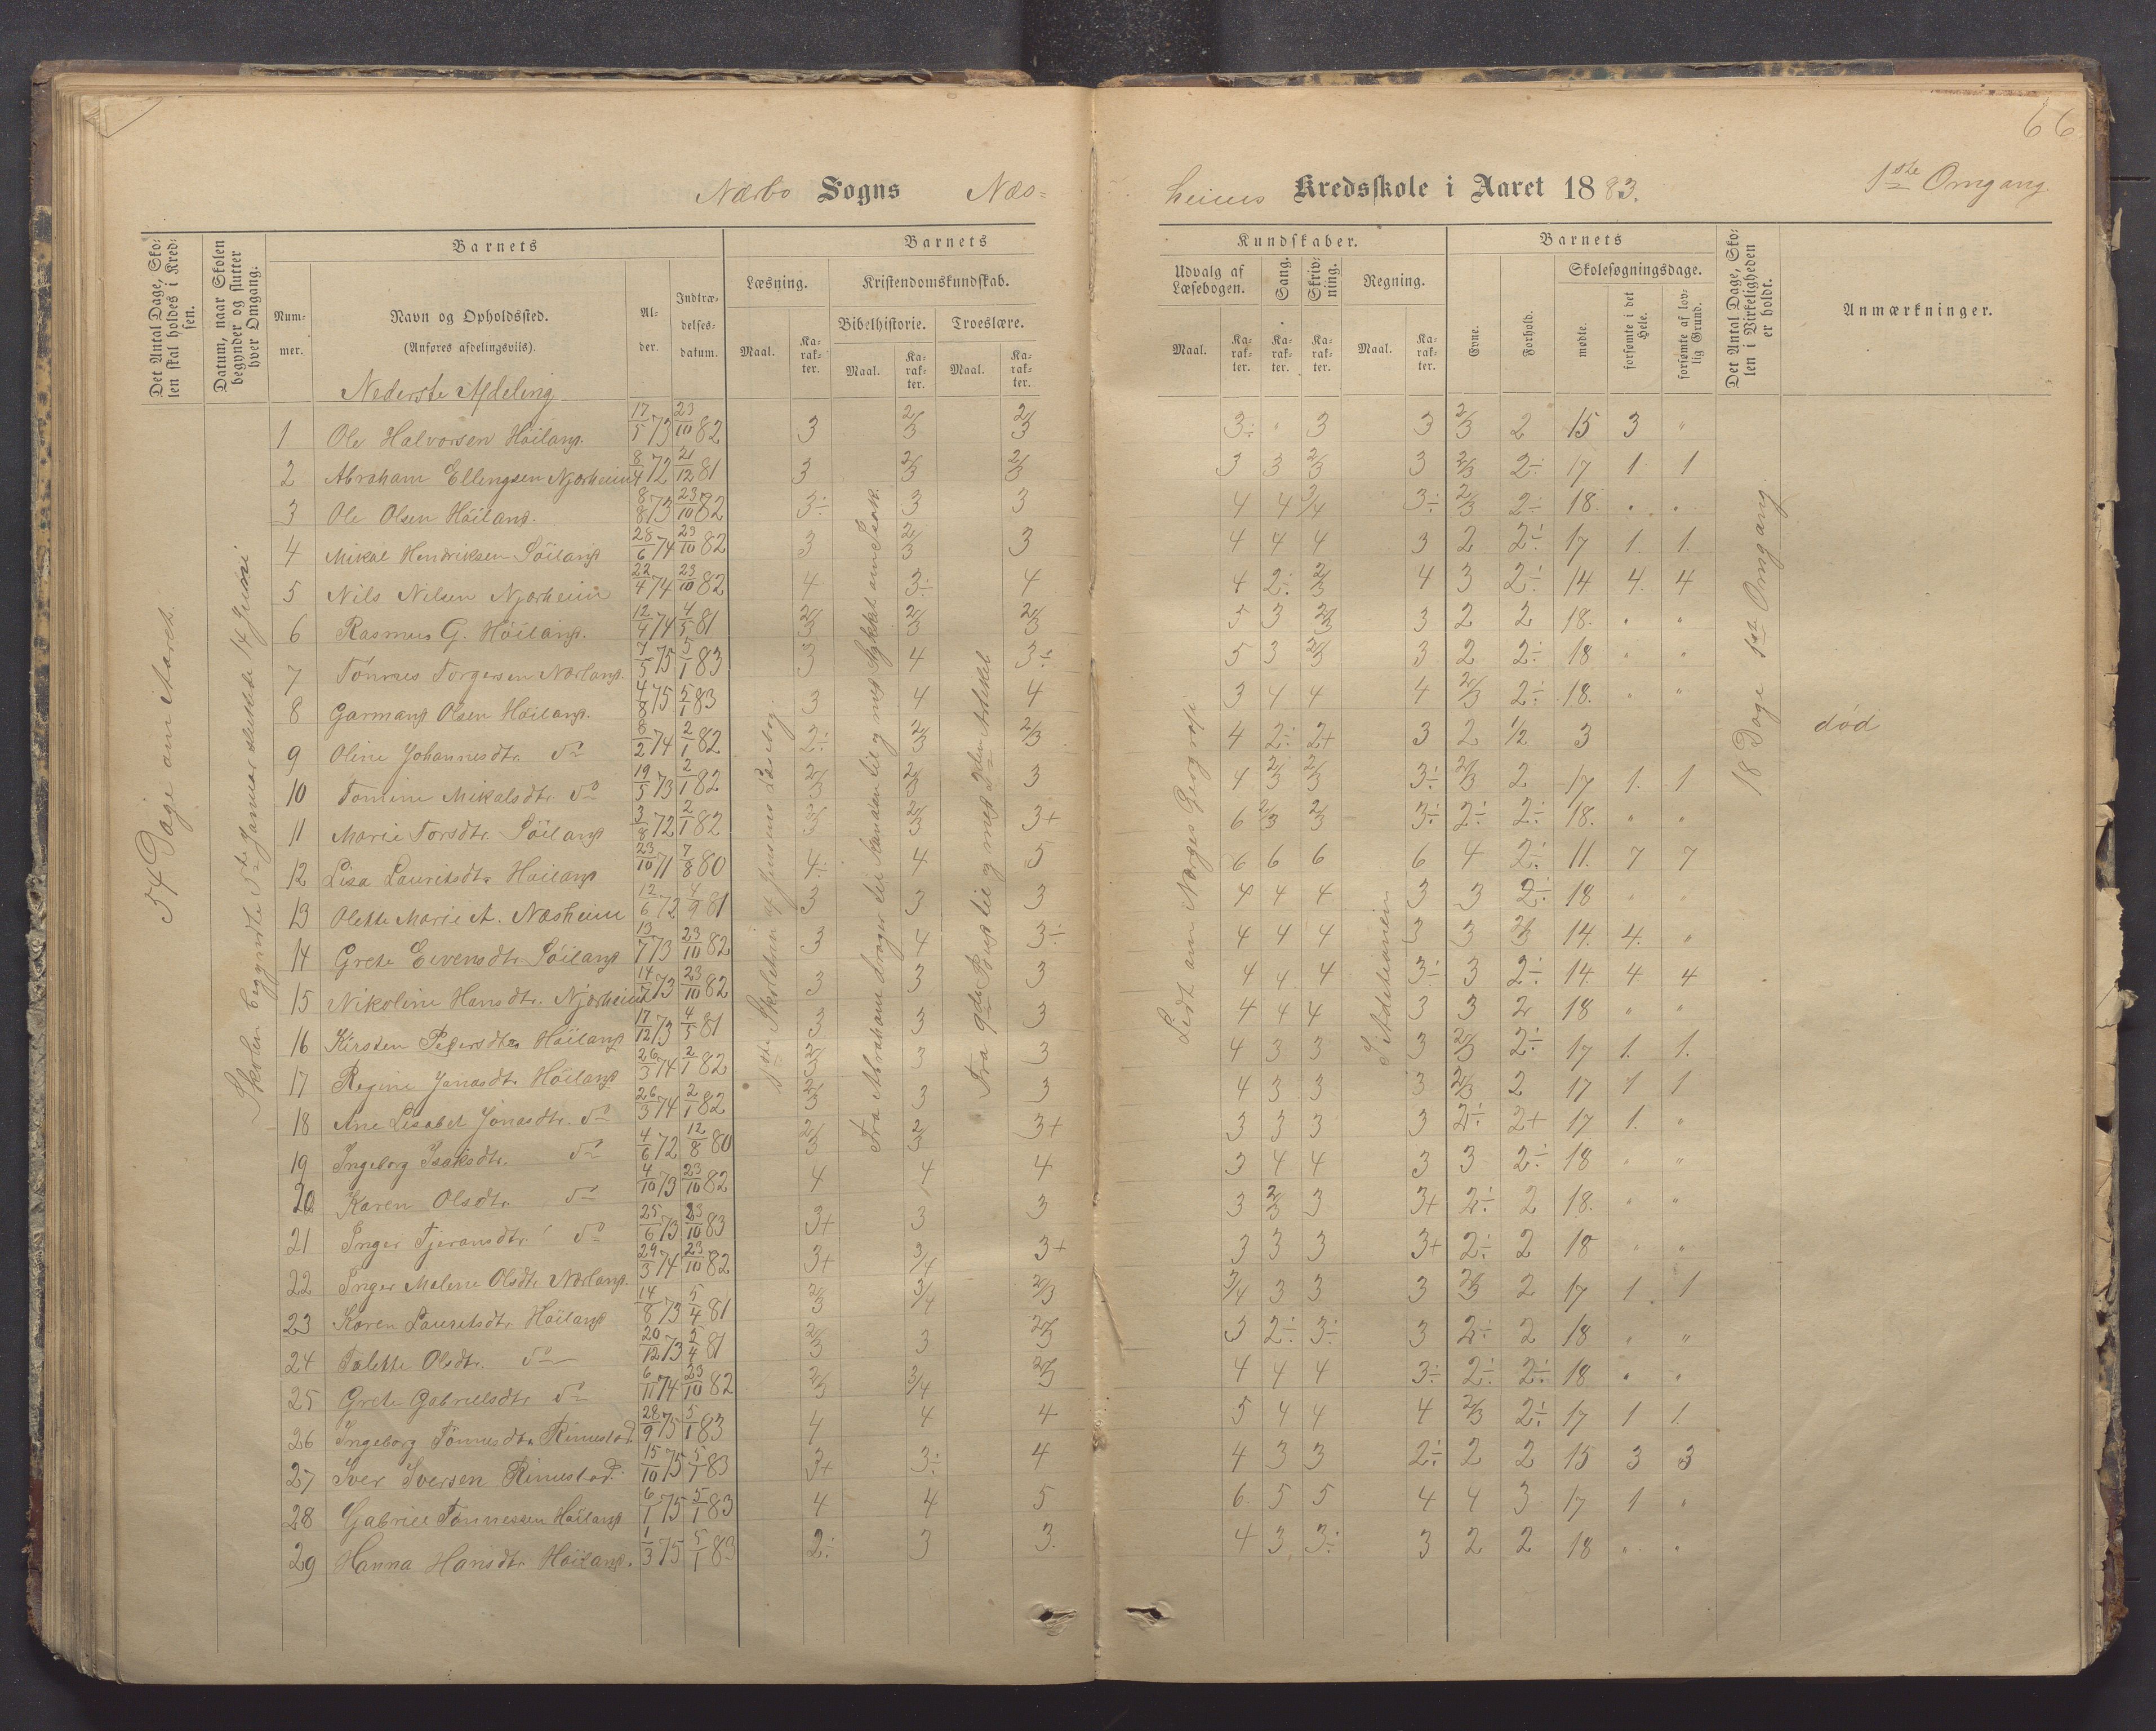 66
Nærbo Sogns Næs=
heims Kredsskole i Aaret 1883.
1ste Omgang.
Det Antal Dage, Sko-
len skal holdes i Kred-
sen.
Datum, naar Skolen
begynder og slutter
hver Omgang.
Barnets
Num-
mer.
Navn og Opholdssted.
(Anføres afdelingsviis).
Al-
der.
Indtræ-
delses-
datum.
Barnets
Læsning.
Maal.
Ka-
rak-
ter.
Kristendomskundskab.
Bibelhistorie.
Maal.
Ka-
rak-
ter.
Troeslære.
Maal.
Ka-
rak-
ter.
Kundskaber.
Udvalg af
Læsebogen.
Maal.
Ka-
rak-
ter.
Sang.
Ka-
rak-
ter.
Skriv-
ning.
Ka-
rak-
ter.
Regning.
Maal.
Ka-
rak-
ter.
Barnets
Evne.
Forhold.
Skolesøgningsdage.
mødte.
forsømte i det
Hele.
forsømte af lov-
lig Grund.
Det Antal Dage, Sko-
len i Virkeligheden
er holdt.
Anmærkninger.
Nederste Afdeling
54 Dage om Aaret.
Skolen begyndte 5te Januar sluttede 14 Juni
1ste Skoletrin af Jensens Læsebog.
Fra Abraham drager til Kanaan til og med Stykket om Isak.
Fra 9de Bud til og med 2den Artikel
Lidt om Norges Geografi
I Additionen
18 Dage 1ste Omgang
1 Ole Halvorsen Höiland. 17/5 73 23/10 82 3 2/3 2/3 3÷ " 3 3 2/3 2 15 3 "
2 Abraham Ellingsen Njærheim 8/4 72 21/12 81 3 2/3 2/3 3 3 2/3 3 2/3 2÷ 17 1 1
3 Ole Olsen Höiland. 8/8 73 23/10 82 3÷ 3 3 4 4 3/4 3÷ 2/3 2÷ 18. " "
4 Mikal Hendriksen Söiland 28/6 74 23/10 82 3 2/3 3 4 4 4 3 2 2÷ 17 1. 1.
5 Nils Nilsen Njærheim 22/4 74 23/10 82 4 3÷ 4 4 2÷ 2/3 4 3 2÷ 14 4. 4
6 Rasmus G. Höiland. 12/4 74 4/5 81 2/3 2/3 2/3 5 3 2/3 3 2 2 18. " "
7 Tönnes Torgersen Nærland. 7/5 75 5/1 83 3 4 3÷ 5 3 2/3 3 2 2÷ 18 " "
8 Garmand Olsen Höiland. 4/8 75 5/1 83 3 4 4 3 4 4 4 2/3 2÷ 18. " "
9 Oline Johannesdtr. do 6/2 74 2/1 82 2÷ 2/3 2/3 4 2÷ 2+ 3 2 1/2 3 død
10 Tomine Mikalsdtr. do 19/5 73 2/1 82 2/3 2/3 3 4 2/3 2/3 3÷ 2/3 2 17 1. 1
11 Marie Torsdtr. Söiland 3/8 72 2/1 82 2/3 2/3 3+ 6 2/3 2/3 3÷ 2÷ 2÷ 18. " "
12 Lisa Lauritsdtr. Höiland 23/10 71 7/8 80 4÷ 4 5 6 6 6 6 4 2÷ 11. 7 7
13 Olette Marie A. Næsheim 12/6 72 4/9 81 3 3 3 4 4 4 3 3 2÷ 18 " "
14 Grete Eivensdtr. Söiland 13/7 73 23/10 82 3 4 3÷ 4 4 4 3 3 2/3 14. 4. "
15 Nikoline Hansdtr. Njærheim 14/7 73 23/10 82 3 3 3 4 4 4 3÷ 3 2÷ 14. 4 4
16 Kirsten Pedersdtr. Höiland 17/12 73 4/5 81 3 3 3 4 4 4 3 3 2 18 " "
17 Regine Jonasdtr. Höiland 26/3 74 2/1 82 2/3 3 3 4 3 3 3 2/3 2÷ 17 1. 1.
18 Ane Lisabet Jonasdtr. do 26/3 74 2/1 82 2/3 3 3 4 3 3 3 2/3 2 17 1 1
19 Ingeborg Isaksdtr. do 4/6 72 12/8 80 2/3 2/3 3+ 3 3 3 3 2÷ 2+ 17 1. "
20 Karen Olsdtr. do 4/10 73 23/10 82 4 4 4 3 4 4 3 3 2÷ 18 " "
21 Inger Tjeransdtr. do 25/6 73 23/10 83 3+ 3 3 3 2/3 3 3+ 2÷ 2 18. " "
22 Inger Malene Olsdtr. Nærland. 29/3 74 23/10 82 3+ 3/4 3+ 3 3 3 3+ 2÷ 2 18 " "
23 Karen Lauritsdtr. Höiland 14/8 73 5/4 81 2/3 3/4 2/3 3/4 3 3 3 2/3 2 17 1. 1
24 Talette Olsdtr. do 20/12 73 5/4 81 2/3 3 2/3 3 2÷ 3÷ 3 2÷ 2 18 " "
25 Grete Gabrielsdtr. do 6/11 74 23/10 82 2/3 3/4 2/3 4 4 4 3÷ 2÷ 2÷ 18 " "
26 Ingeborg Tönnesdtr. Rimestad. 28/9 75 5/1 83 4 4 4 5 4 4 4 2/3 2÷ 17 1 1.
27 Iver Iversen Rimestad. 15/10 75 5/1 83 3+ 3÷ 4 4 3 3 2÷ 2 2 15 3 3
28 Gabriel Tönnessen Höiland 6/1 75 5/1 83 4 4 5 6 5 5 4 4 3 17 1 "
29 Hanna Hansdtr. Höiland. 1/3 75 5/1 83 2÷ 3 3. 4 3 3÷ 3 2 2 18 " "